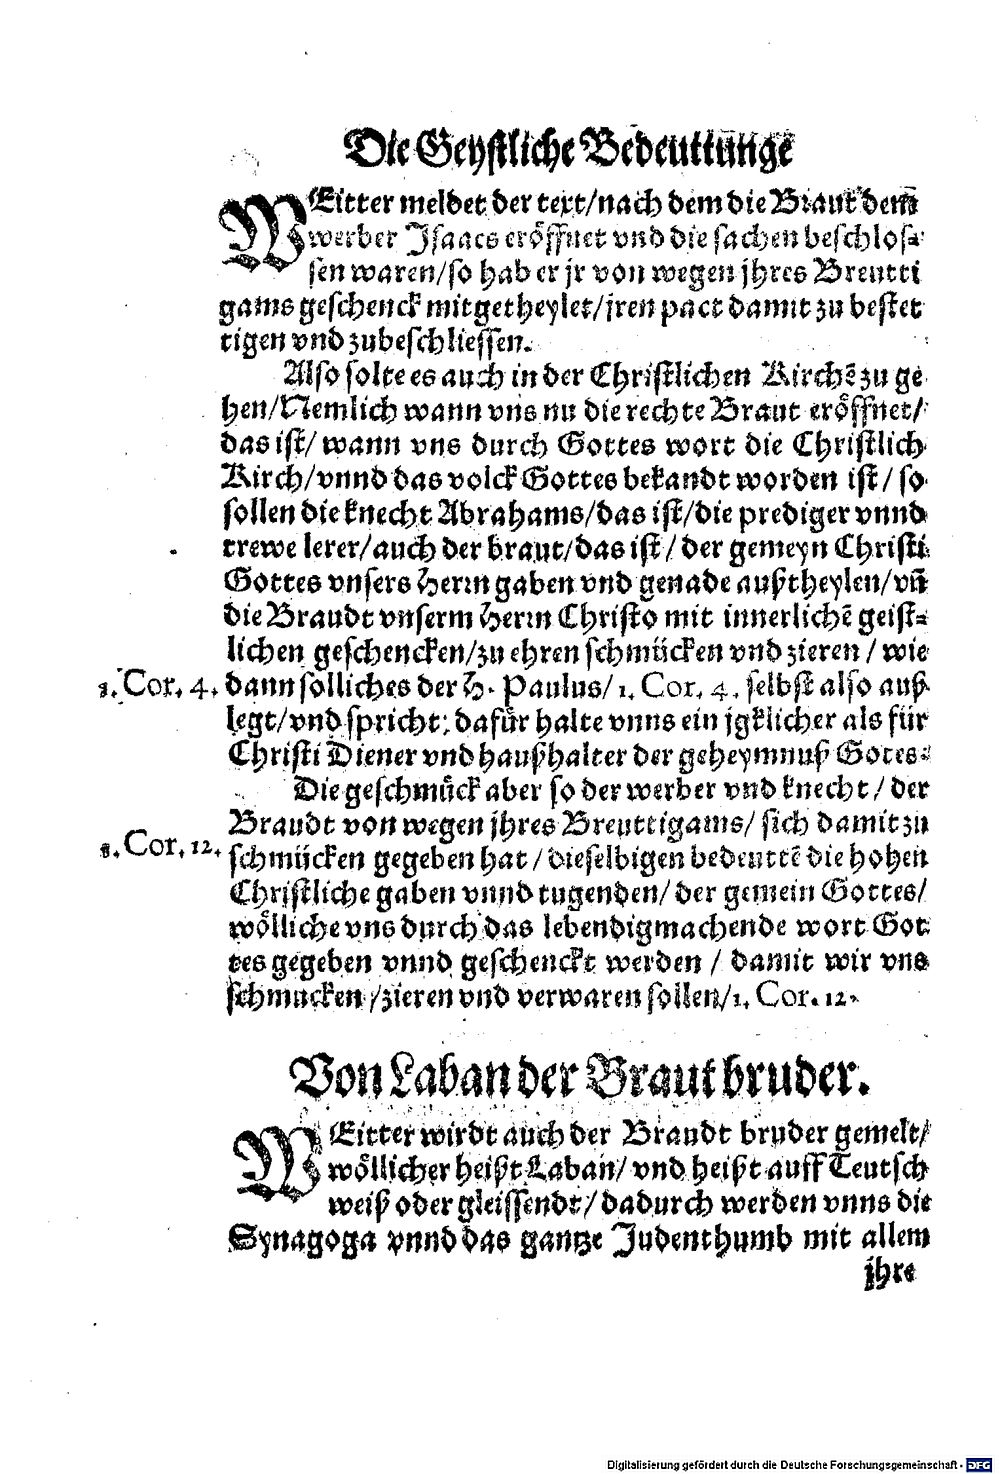 Die Geystliche Bedeuttũnge
WEitter meldet der text/nach dem die Braut dem
werber Isaacs eröffnet vnd die sachen beschlos⸗
sen waren/so hab er jr von wegen jhres Breutti
gams geschenck mitgetheylet/jren pact damit zu bestet
tigen vnd zubeschliessen.
Also solte es auch in der Christlichen Kirchẽ zu ge
hen/Nemlich wann vns nu die rechte Braut eröffnet/
das ist/ wann vns durch Gottes wort die Christlich
Kirch/vnnd das volck Gottes bekandt worden ist/ so
sollen die knecht Abrahams/das ist/die prediger vnnd
trewe lerer/auch der braut/das ist/ der gemeyn Christi
Gottes vnsers Herrn gaben vnd genade außtheylen/vñ
die Braudt vnserm Herrn Christo mit innerlichẽ geist⸗
lichen geschencken/zu ehren schmücken vnd zieren / wie
1. Cor. 4. dann solliches der H. Paulus/ 1. Cor. 4. selbst also auß
legt/vnd spricht: dafür halte vnns ein jgklicher als für
Christi Diener vnd haußhalter der geheymnuß Gotes.
Die geschmück aber so der werber vnd knecht/ der
Braudt von wegen jhres Breuttigams/ sich damit zu
1. Cor. 12. schmücken gegeben hat / dieselbigen bedeuttẽ die hohen
Christliche gaben vnnd tugenden/ der gemein Gottes/
wölliche vns durch das lebendigmachende wort Got
tes gegeben vnnd geschenckt werden / damit wir vns
schmucken /zieren vnd verwaren sollen/1. Cor. 12.
Von Laban der Braut bruder.
WEitter wirdt auch der Braudt bruder gemelt/
wöllicher heißt Laban/ vnd heißt auff Teutsch
weiß oder gleissendt/ dadurch werden vnns die
Synagoga vnnd das gantze Judenthumb mit allem
jhre
Digitalisierung gefördert durch die Deutsche Forschungsgemeinschaft - DFG